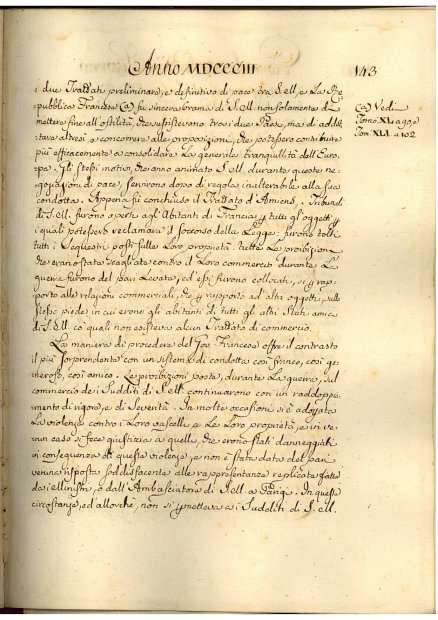 Anno MDCCCIII
143
i due Trattati preliminare, e definitivo di pace tra S. M., e La Re-
pubblica Francese (a) fu sincera brama di S. M. non solamente di
mettere fine all'ostilità, che sussistevano tra i due Paesi, ma di addot-
tare altresì e concorrere alle proposizioni, che potessero contribuire
più efficacemente a consolidare La generale tranquillità dell'Euro-
pa. Gli stessi motivi, che aveano animato S. M. durante queste ne-
goziazioni di pace, servirono dopo di regola inalterabile alla sua
condotta. Appena fu conchiuso il Trattato d'Amiens, i Tribunali
di S. M. furono aperti agli Abitanti di Francia p tutti gli oggetti p
i quali potessero reclamare il soccorso della Legge: furono tolti
tutti i sequestri posti sulle Loro proprietà: tutte Le proibizioni
che erano state scagliate contro il Loro commercio durante La
guerra furono del pari Levate, ed essi furono collocati, sì p rap-
porto alle relazioni commerciali, che p rapporto ad altri oggetti, sullo
stesso piede in cui erono gli abitanti di tutti gli altri Stati amici
di S. M. co' quali non esisteva alcun Trattato di commercio.
La maniera di procedere del Gov. Francese offre il contrasto
il più sorprendente con un sistema di condotta così franco, così ge-
neroso, così amico. Le proibizioni poste, durante La guerra, sul
commercio de' Sudditi di S. M. continuarono con un raddoppia-
mento di rigore, e di Severità. In molte occasioni si è adoprata
La violenza contro i Loro vascelli, e Le Loro proprietà, e in ve-
run caso si fece giustizia a quelli, che erono stati danneggiati
in conseguenza di queste violenze, e non è stata data del pari
veruna risposta soddisfacente alle rappresentanze replicate fatte
da' Ministri, o dall'Ambasciatore di S. M. a Parigi. In queste
circostanze, ed allorchè, non si permetteva a i Sudditi di S. M.
(a) Vedi
Tomo XL a 99, e
Tom. XLI. a 102